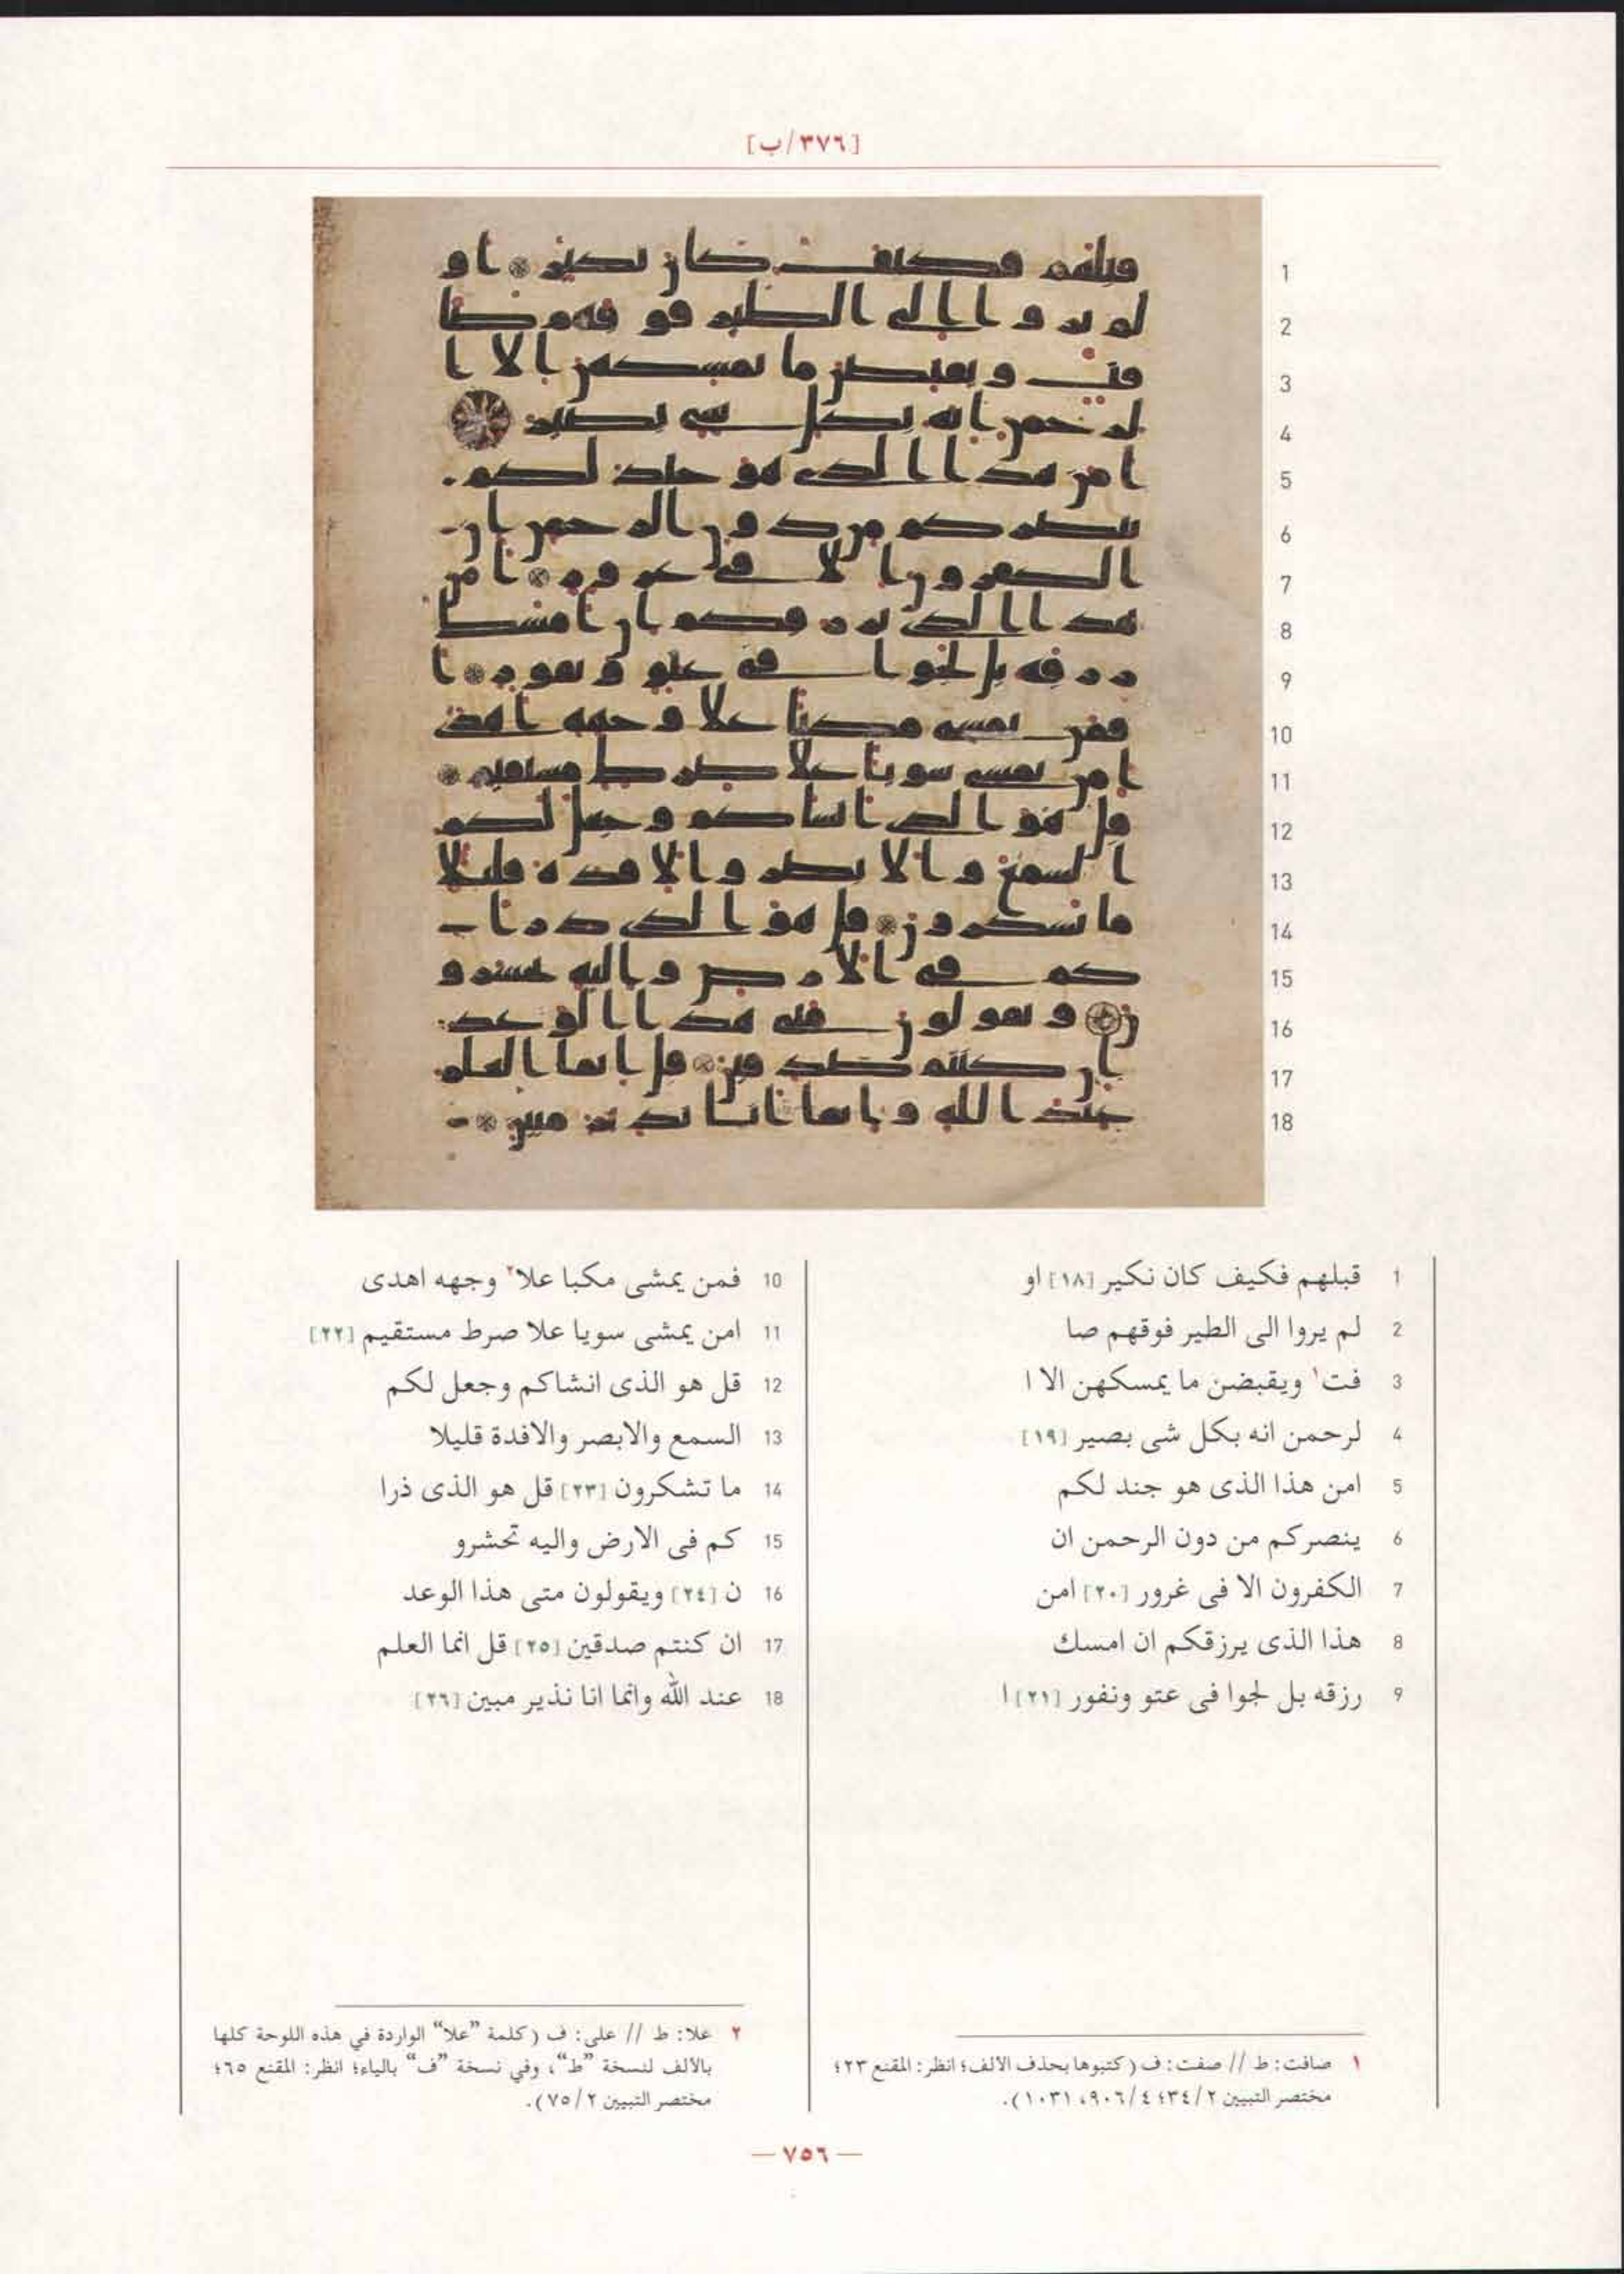 [٣٧٦/ب]
1 قبلهم فكيف كان نكير [١٨] او
2 لم يروا الى الطير فوقهم صا
3 فت١ ويقبضن ما يمسكهن الا ا
4 لرحمن انه بكل شى بصير [١٩]
5 امن هذا الذى هو جند لكم
6 ينصركم من دون الرحمن ان
7 الكفرون الا فى غرور [٢٠] امن
8 هذا الذى يرزقكم ان امسك
9 رزقه بل لجوا فى عتو ونفور [٢١] ا
10 فمن يمشى مكبا علا٢ وجهه اهدى
11 امن يمشى سويا علا صرط مستقيم [٢٢]
12 قل هو الذى انشاكم وجعل لكم
13 السمع والابصر والافدة قليلا
14 ما تشكرون [٢٣] قل هو الذى ذرا
15 كم فى الارض واليه تحشرو
16 ن [٢٤] ويقولون متى هذا الوعد
17 ان كنتم صدقين [٢٥] قل انما العلم
18 عند الله وانما انا نذير مبين [٢٦]
١ صافت: ط // صفت: ف (كتبوها بحذف الالف؛ انظر: المقنع ٢٣؛
مختصر التبيين ٣٤/٢؛ ٩٠٦/٤، ١٠٣١).
٢ علا: ط // على: ف (كلمة "علا" الواردة في هذه اللوحة كلها
بالألف لنسخة "ط"، وفي نسخة "ف" بالياء؛ انظر: المقنع ٦٥؛
مختصر التبيين ٧٥/٢).
— ٧٥٦ —